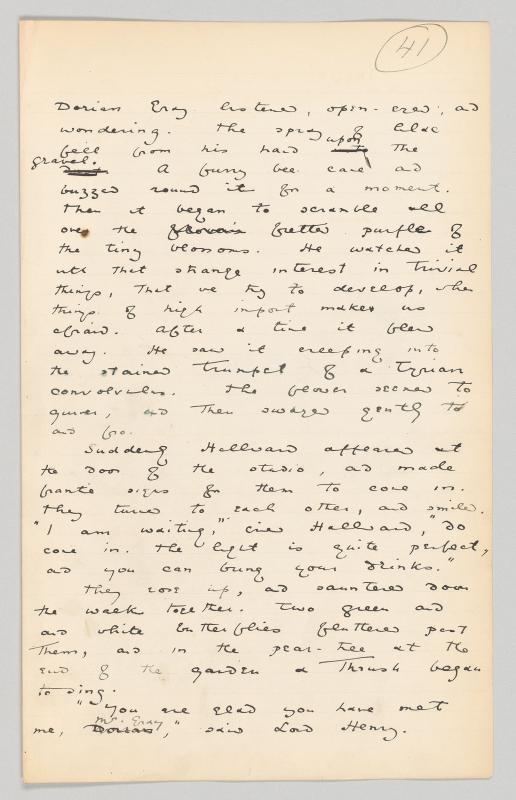 41
Dorian Gray listened, open-eyed, and
wondering. The spray of lilac
fell from his hand upon the
gravel. A furry bee came and
buzzed round it for a moment.
Then it began to scramble all
over the fretted purple of
the tiny blossoms. He watched it
with that strange interest in trivial
things, that we try to develop, when
things of high import makes us
afraid. After a time it flew
away. He saw it creeping into
the stained trumpet of a Tyrian
convolvulus. The flower seemed to
quiver, and then swayed gently to
and fro.
Suddenly Hallward appeared at
the door of the studio, and made
frantic signs for them to come in.
They turned to each other, and smiled.
"I am waiting," cried Hallward, "Do
come in. The light is quite perfect,
and you can bring your drinks."
They rose up, and sauntered down
the walk together. Two green and
and white butterflies fluttered past
them, and in the pear-tree at the
end of the garden a Thrush began
to sing.
"You are glad you have met
me, Mr. Gray," said Lord Henry.